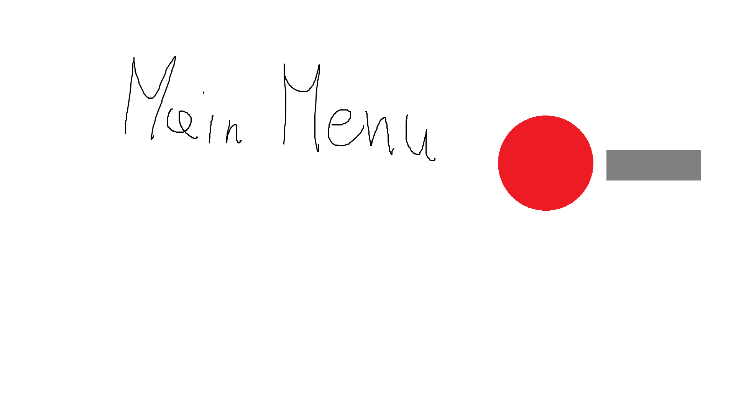 Main Menu